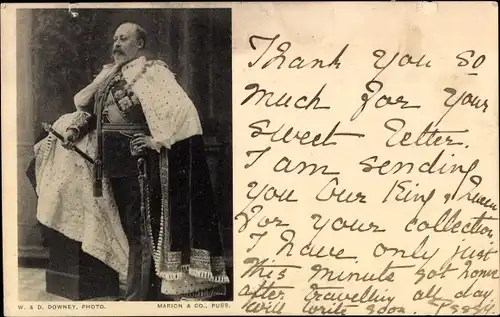 Thank you so
much for your
sweet letter.
I am sending
you our King & Queen
for your collection
I have only just
this minute got home
after travelling all day
Will write soon.
W. & D. DOWNEY, PHOTO.
MARION & CO., PUBS.